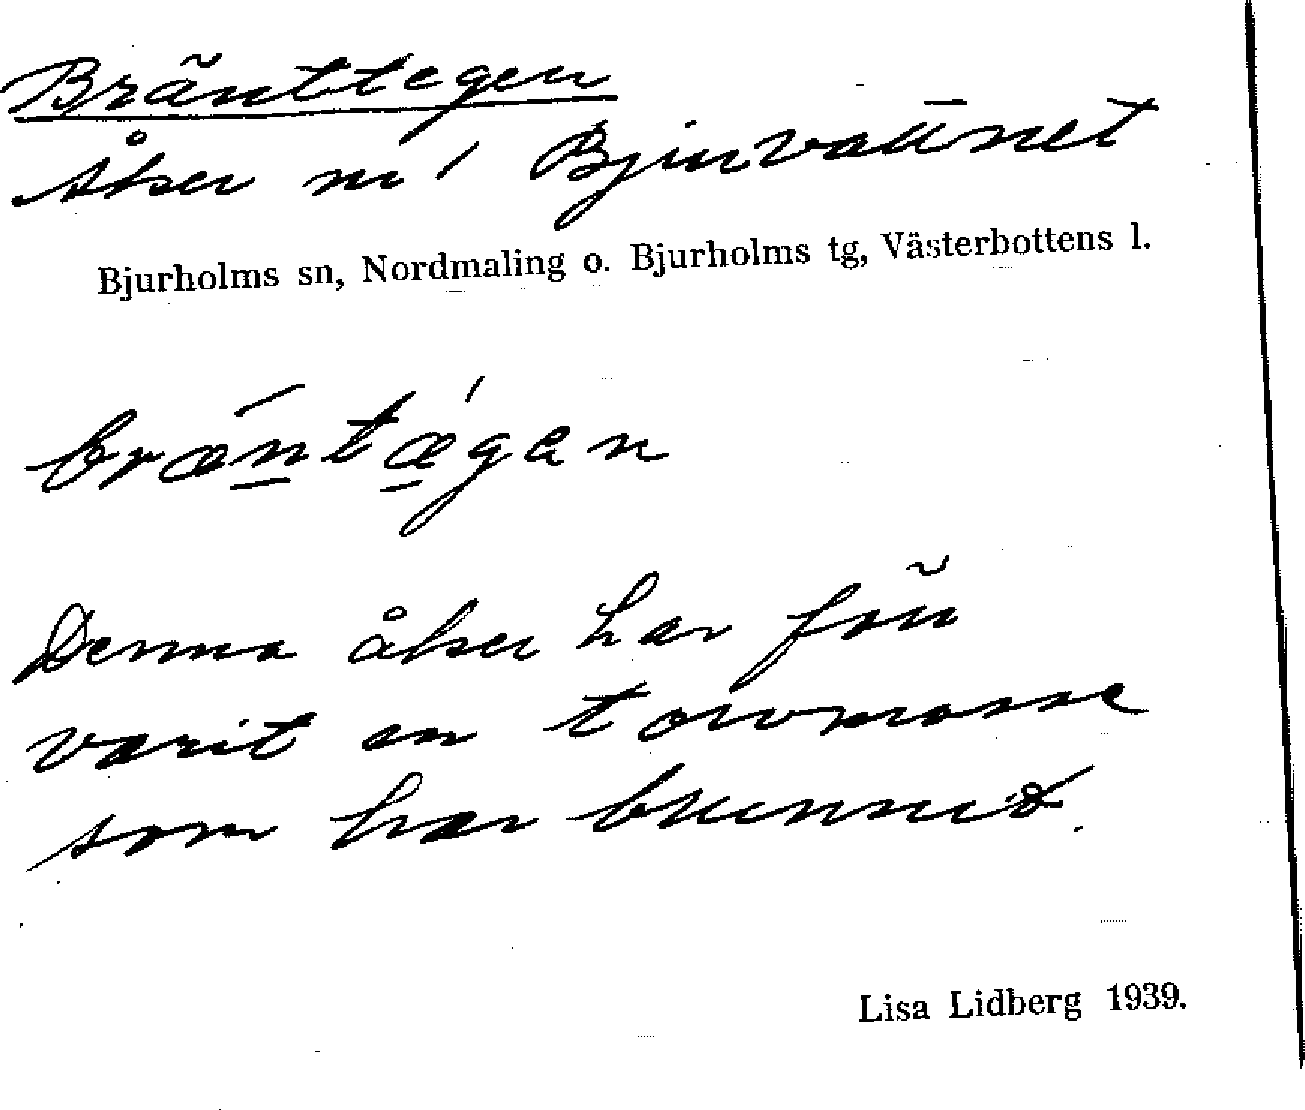 Bränttegen
Åker nr 1 Bjurvattnet
Bjurholms sn, Nordmaling o. Bjurholms tg, Västerbottens l.
bræ´ntæ´gan
Denna åker har förr
varit en torvmosse
som har brunnit.
Lisa Lidberg 1939.